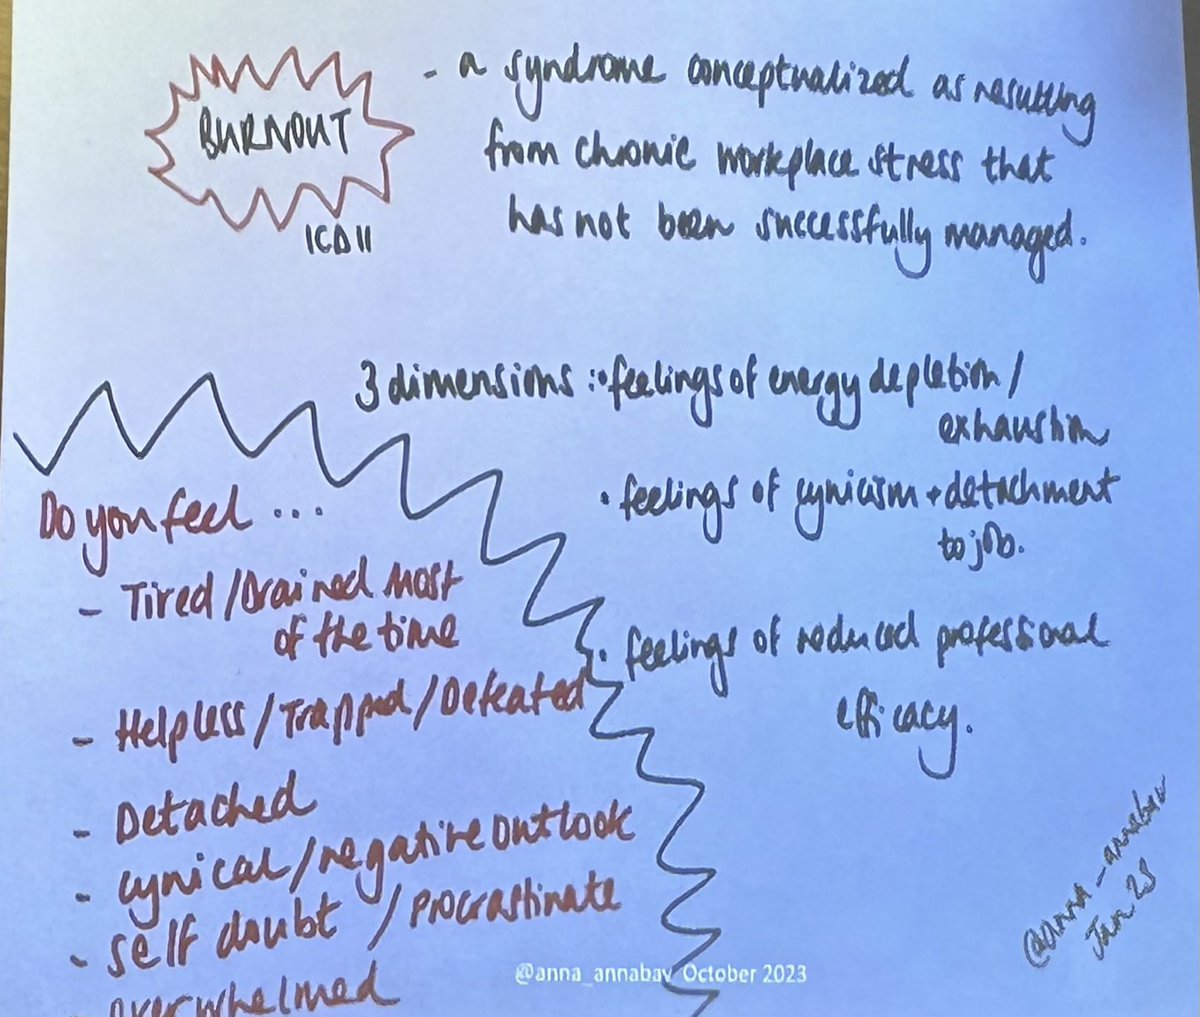 BURNOUT
ICD 11
- a syndrome conceptualized as resulting
from chronic workplace stress that
has not been successfully managed.
3 dimensions : • feelings of energy depletion /
exhaustion
• feelings of cynicism + detachment
to job.
• feelings of reduced professional
efficacy.
Do you feel ...
- Tired / Drained most
of the time
- Helpless / Trapped / Defeated
- Detached
- cynical / negative outlook
- self doubt / procrastinate
- overwhelmed
@anna_annabav
Jan 23
@anna_annabav October 2023